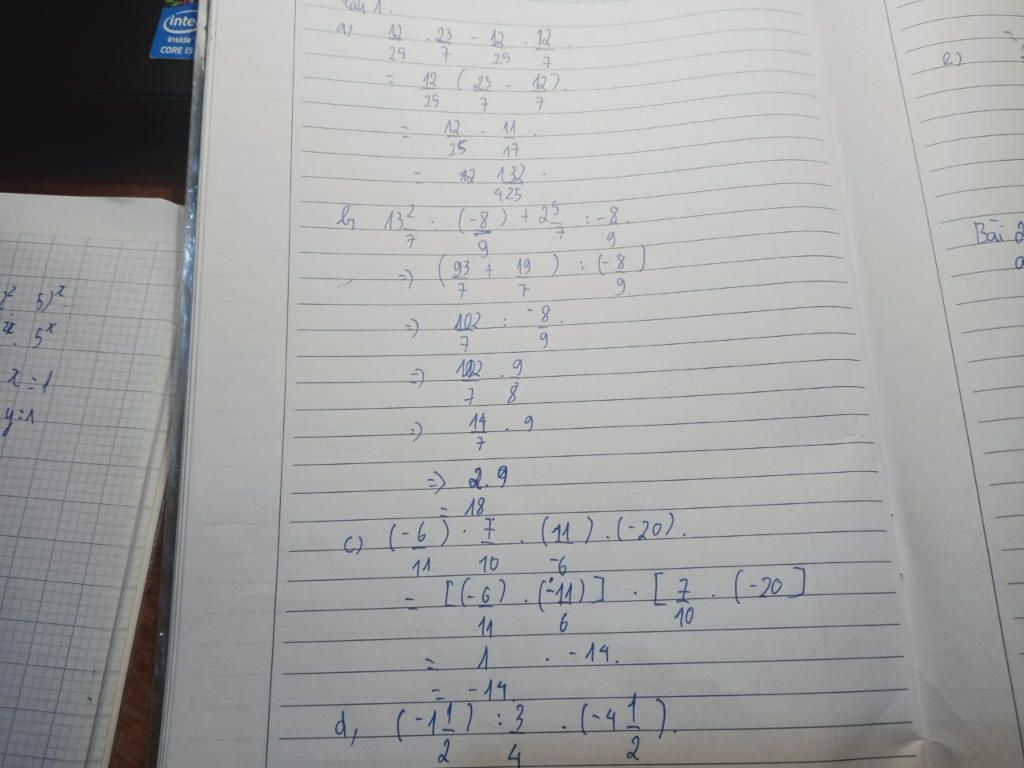 intel
inside
CORE i5
Câu 1.
a, 12/25 . 23/7 - 12/25 . 12/7.
= 12/25 (23/7 - 12/7).
= 12/25 . 11/17.
= 132/425.
b, 13 2/7 : (-8/9) + 2 5/7 : -8/9.
=) (93/7 + 19/7) : (-8/9]
=) 102/7 : -8/9.
=) 112/7 . 9/8
=) 14/7 . 9
=) 2.9
= 18
c) (-6/11) . 7/10 . (11/-6) . (-20).
= [(-6/11) . (-11/6)] . [7/10 . (-20]
= 1 . -14.
= -14
d, (-1 1/2) : 3/4 . (-4 1/2).
5)^x.
. 5^x
x = 1
y = 1
e)
Bài 2
a